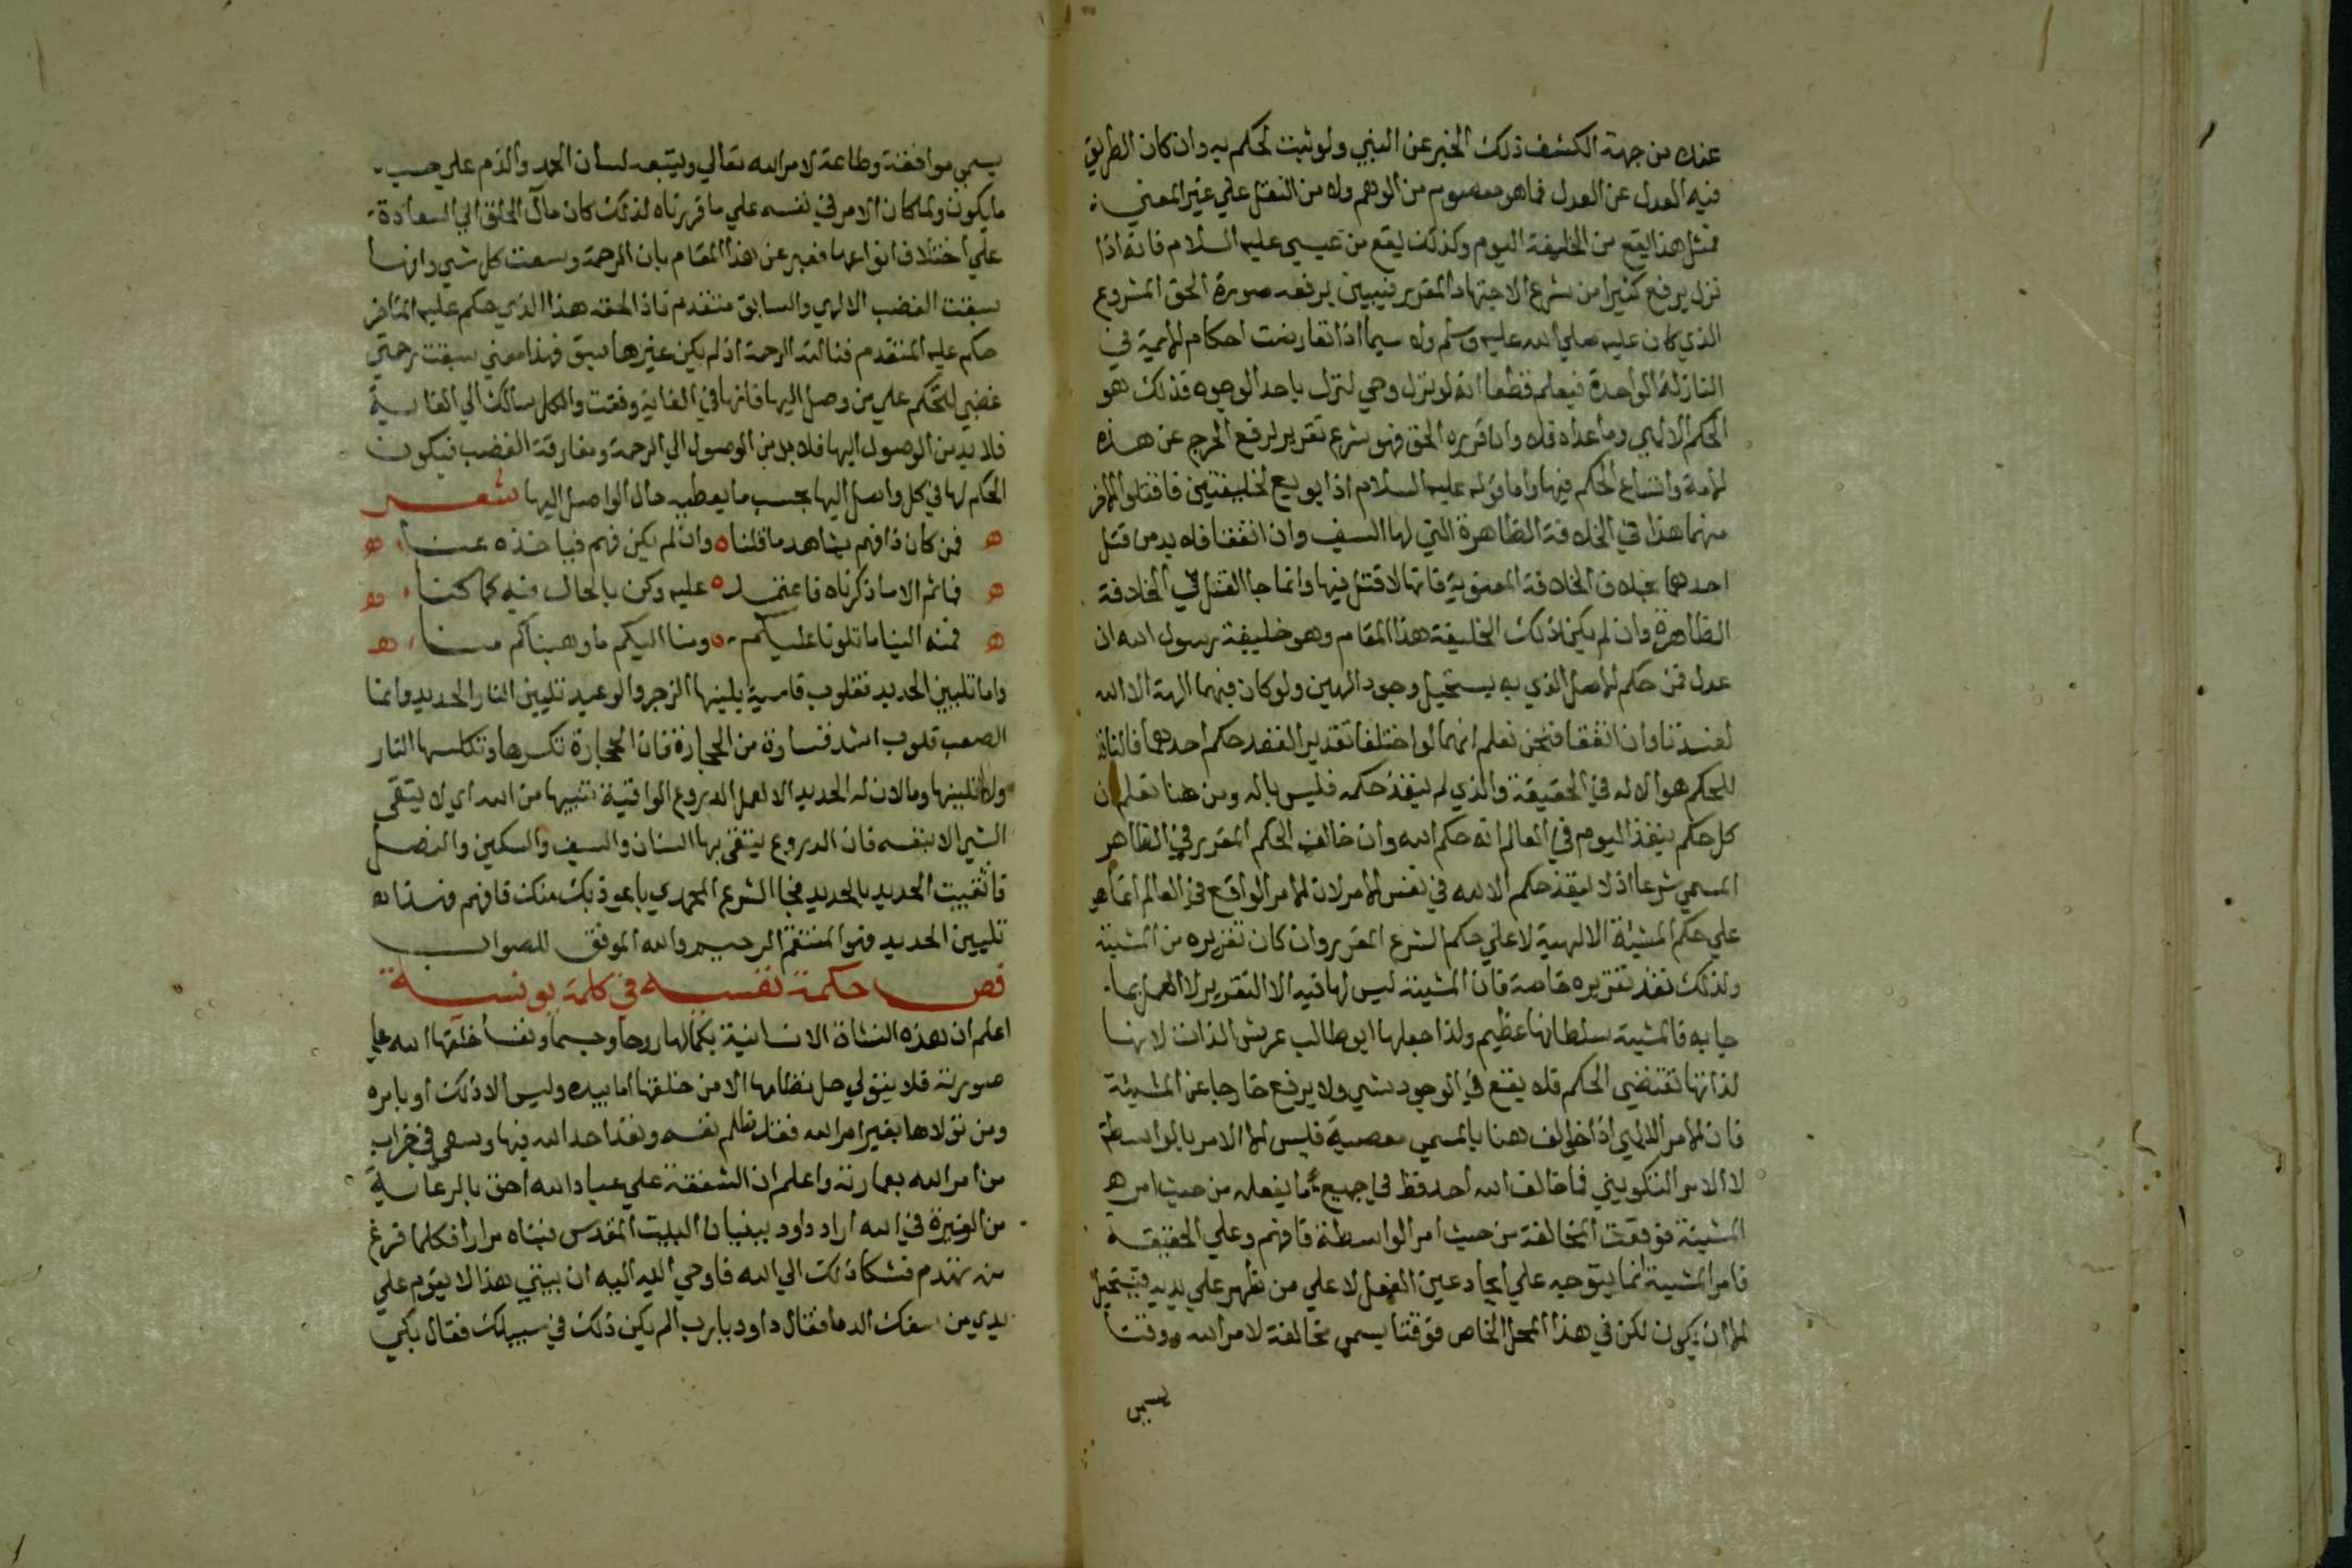 عنده من جهة الكشف ذلك الخبر عن النبي ولو ثبت لحكم به وان كان الطريق
فيه العدل عن العدل فما هو معصوم من الوهم ولا من النقل علي غير المعني
فمثل هذا يقع من الخليفة اليوم وكذلك يقع من عيسي عليه السلام فانه اذا
نزل يرفع كثيرا من شرع الاجتهاد المقرر فيبين برفعه صورة الحق المشروع
الذي كان عليه صلي الله عليه وسلم ولا سيما اذا تعارضت احكام الايمة في
النازلة الواحدة فيعلم قطعا انه لو نزل وحي لنزل باحد الوجوه فذلك هو
الحكم الالهي وما عداه فلا وان قرره الحق فهو شرع تقرير لرفع الحرج عن هذه
الامة واتساع الحكم فيها واما قوله عليه السلام اذا بويع لخليفتين فاقتلوا الاخر
منهما هذا في الخلافة الظاهرة التي لها السيف وان اتفقا فلا بد من قتل
احدهما بخلاف الخلافة المعنوية فانها لا قتل فيها وانما جا القتل في الخلافة
الظاهرة وان لم يكن لذلك الخليفة هذا المقام وهو خليفة رسول الله ان
عدل فمن حكم الاصل الذي به يستحيل وجود الهين ولو كان فيهما الهة الا الله
لفسدتا وان اتفقا فنحن نعلم انهما لو اختلفا تقديرا لنفد حكم احدهما فالنافذ
الحكم هو الاله في الحقيقة والذي لم ينفذ حكمه فليس باله ومن هنا نعلم ان
كل حكم ينفذ اليوم في العالم انه حكم الله وان خالف الحكم المقرر في الظاهر
المسمي شرعا اذ لا ينفذ حكم الا لله في نفس الامر لان الامر الواقع في العالم انما هو
علي حكم المشيئة الالهية لا علي حكم الشرع المقرر وان كان تقريره من المشيئة
ولذلك نفذ تقريره خاصة فان المشيئة ليس لها فيه الا التقرير لا العمل بما
جا به فالمشيئة سلطانها عظيم ولذا جعلها ابو طالب عرش الذات لانها
لذاتها تقتضي الحكم فلا يقع في الوجود شي ولا يرفع خارجا عن المشيئة
فان الامر الالهي اذا خولف هنا بالمسمي معصية فليس الا الامر بالواسطة
لا الامر التكويني فما خالف الله احد قط في جميع ما يفعله من حيث امر
المشيئة فوقعت المخالفة من حيث امر الواسطة فافهم وعلي الحقيقة
فامر المشيئة انما يتوجه علي ايجاد عين الفعل لا علي من ظهر علي يديه فيستحيل
الا ان يكون لكن في هذا المحل الخاص فوقتا يسمي مخالفة لامر الله ووقتا
يسمي
يسمي موافقة وطاعة لامر الله تعالي ويتبعه لسان الحمد والذم علي حسب
ما يكون ولما كان الامر في نفسه علي ما قررناه لذلك كان مآل الخلق الي السعادة
علي اختلاف انواعها فعبر عن هذا المقام بان الرحمة وسعت كل شي وانها
سبقت الغضب الالهي والسابق متقدم فاذا لحقه هذا الذي حكم عليه المتاخر
حكم عليه المتقدم فنالته الرحمة اذ لم يكن غيرها سبق فهذا معني سبقت رحمتي
غضبي لتحكم علي من وصل اليها فانها في الغاية وقفت والكل سالك الي الغاية
فلا بد من الوصول اليها فلا بد من الوصول الي الرحمة ومفارقة الغضب فيكون
الحكم لها في كل واصل اليها بحسب ما يعطيه حال الواصل اليها شعر
فمن كان ذا فهم يشاهد ما قلنا وان لم يكن فهم فياخذه عنا
فما ثم الا ما ذكرناه فاعتمد عليه وكن بالحال فيه كما كنا
فمنه الينا ما تلونا عليكم ومنا اليكم ما وهبناكم منا
واما تليين الحديد فقلوب قاسية يلينها الزجر والوعيد تليين النار الحديد وانما
الصعب قلوب اشد قساوة من الحجارة فان الحجارة تكسرها وتكلسها النار
ولا تلينها وما الان له الحديد الا لعمل الدروع الواقية تنبيها من الله اي لا يتقي
الشي الا بنفسه فان الدروع يتقي بها السنان والسيف والسكين والنصل
فاتقيت الحديد بالحديد فجا الشرع المحمدي باعوذ بك منك فافهم فهذا
تليين الحديد فهو المنتقم الرحيم والله الموفق للصواب
فص حكمة نفسيه في كلمة يونسية
اعلم ان هذه النشاة الانسانية بكمالها روحا وجسما ونفسا خلقها الله علي
صورته فلا يتولي حل نظامها الا من خلقها اما بيده وليس الا ذلك او بامره
ومن تولاها بغير امر الله فقد ظلم نفسه وتعدا حد الله فيها وسعي في خراب
من امر الله بعمارته واعلم ان الشفقة علي عباد الله احق بالرعاية
من الغيرة في الله اراد داود بنيان البيت المقدس فبناه مرارا فكلما فرغ
منه تهدم فشكا ذلك الي الله فاوحي الله اليه ان بيتي هذا لا يقوم علي
يدي من سفك الدما فقال داود يا رب الم يكن ذلك في سبيلك فقال بلي